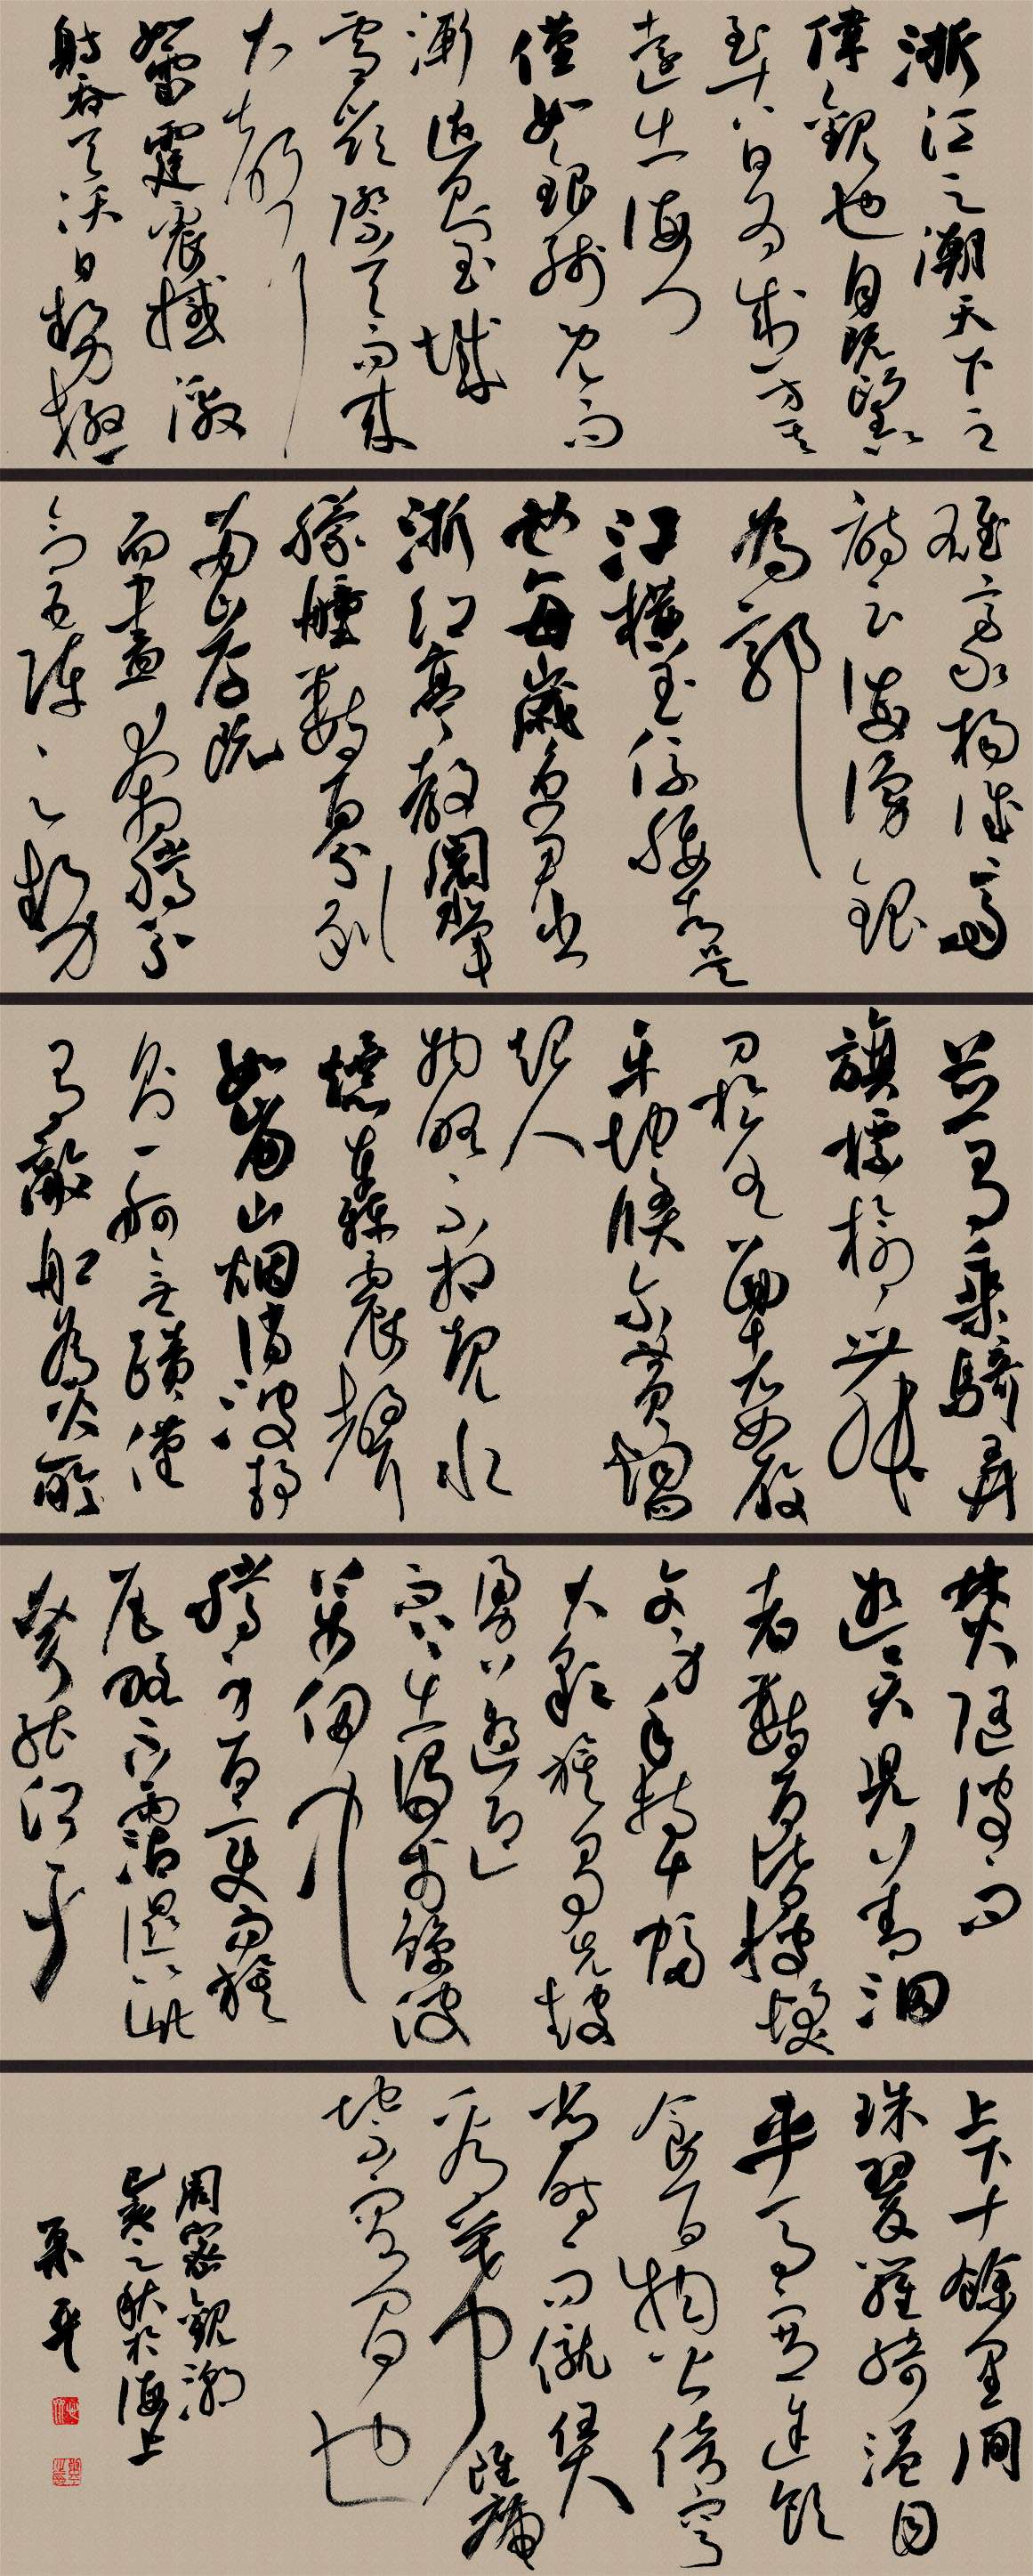 浙江之潮天下之
偉觀也自既望以
至十八日為盛方其
遠出海門
僅如銀線既而
漸近則玉城
雪嶺際天而來
大聲
如雷霆震撼激
射吞天沃日勢極
雄豪楊誠齋
詩云海湧銀
為郭
江橫玉係腰者是
也每歲京尹出
浙江亭教閱水軍
艨艟數百分列
兩岸既
而盡奔騰分
合五陣之勢
並有乘騎弄
旗標槍舞
刀於水面者如履
平地倏爾黃煙
起人
物略不相睹水
爆轟震聲
如崩山烟消波靜
則一舸無蹟僅
有敵船為火所
焚隨波而
逝吳兒善泅
者數百皆披髮
文身手持十幅
大彩旗爭先鼓
勇溯迎而上
出沒於鯨波
萬仞中
騰身百變而旗
尾略不霑濕以此
誇能江干
上下十餘里間
珠翠羅綺溢目
車馬塞途飲
食百物皆倍穹
常時而僦賃
看幕雖席
地不容間也
周密觀潮
己亥之秋於海上